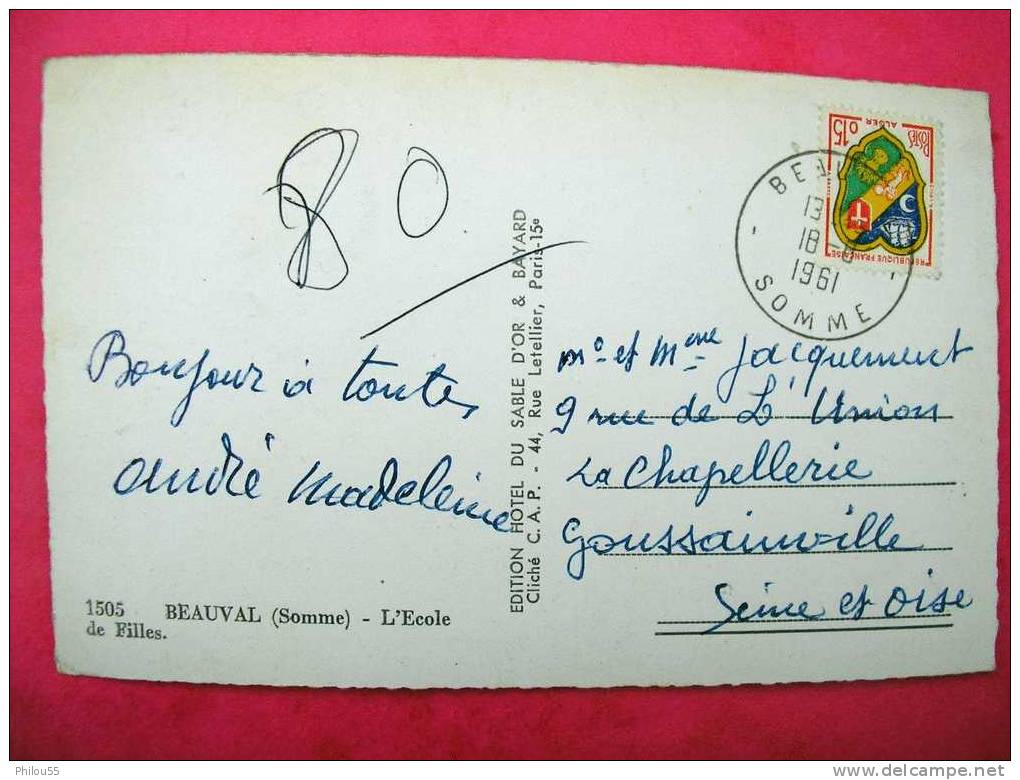 80
Bonjour à toutes
André Madeleine
1505 BEAUVAL (Somme) - L'Ecole
de Filles.
EDITION HOTEL DU SABLE D'OR & BAYARD
Cliché C. A. P. - 44, Rue Letellier, Paris-15e
POSTES
0,15
ALGER
RÉPUBLIQUE FRANÇAISE
13
18
1961
SOMME
Mr et Mme Jacquement
9 rue de L'Union
La Chapellerie
Goussainville
Seine et Oise
Philou55